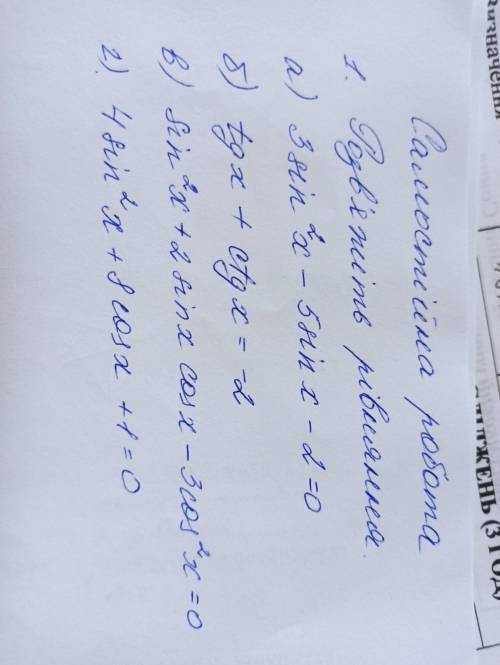 Самостійна робота
1. Розв'яжіть рівняння.
а) 3sin²x - 5sin x - 2 = 0
б) tgx + ctgx = -2
в) sin²x + 2sinx cosx - 3cos²x = 0
г) 4sin²x + 8cosx + 1 = 0